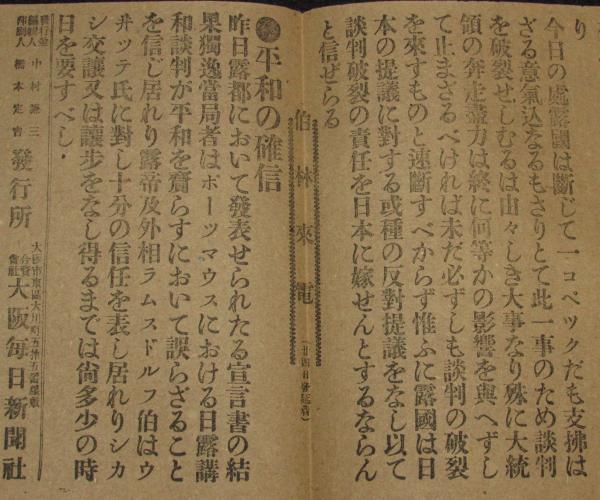 り
今日の處露國は斷じて一コペックだも支拂は
ざる意氣込なるもさりとて此一事のため談判
を破裂せしむるは由々しき大事なり殊に大統
領の奔走盡力は終に何等かの影響を與へずし
て止まざるべければ未だ必ずしも談判の破裂
を來すものと速斷すべからず惟ふに露國は日
本の提議に對する或種の反對提議をなし以て
談判破裂の責任を日本に嫁せんとするならん
と信ぜらる
伯林來電
◉平和の確信
昨日露都において發表せられたる宣言書の結
果獨逸當局者はポーツマウスにおける日露講
和談判が平和を齎らすにおいて誤らざること
を信じ居れり露帝及外相ラムスドルフ伯はウ
井ッテ氏に對し十分の信任を表し居れりシカ
シ交讓又は讓步をなし得るまでは尙多少の時
日を要すべし．
發行所
大阪每日新聞社